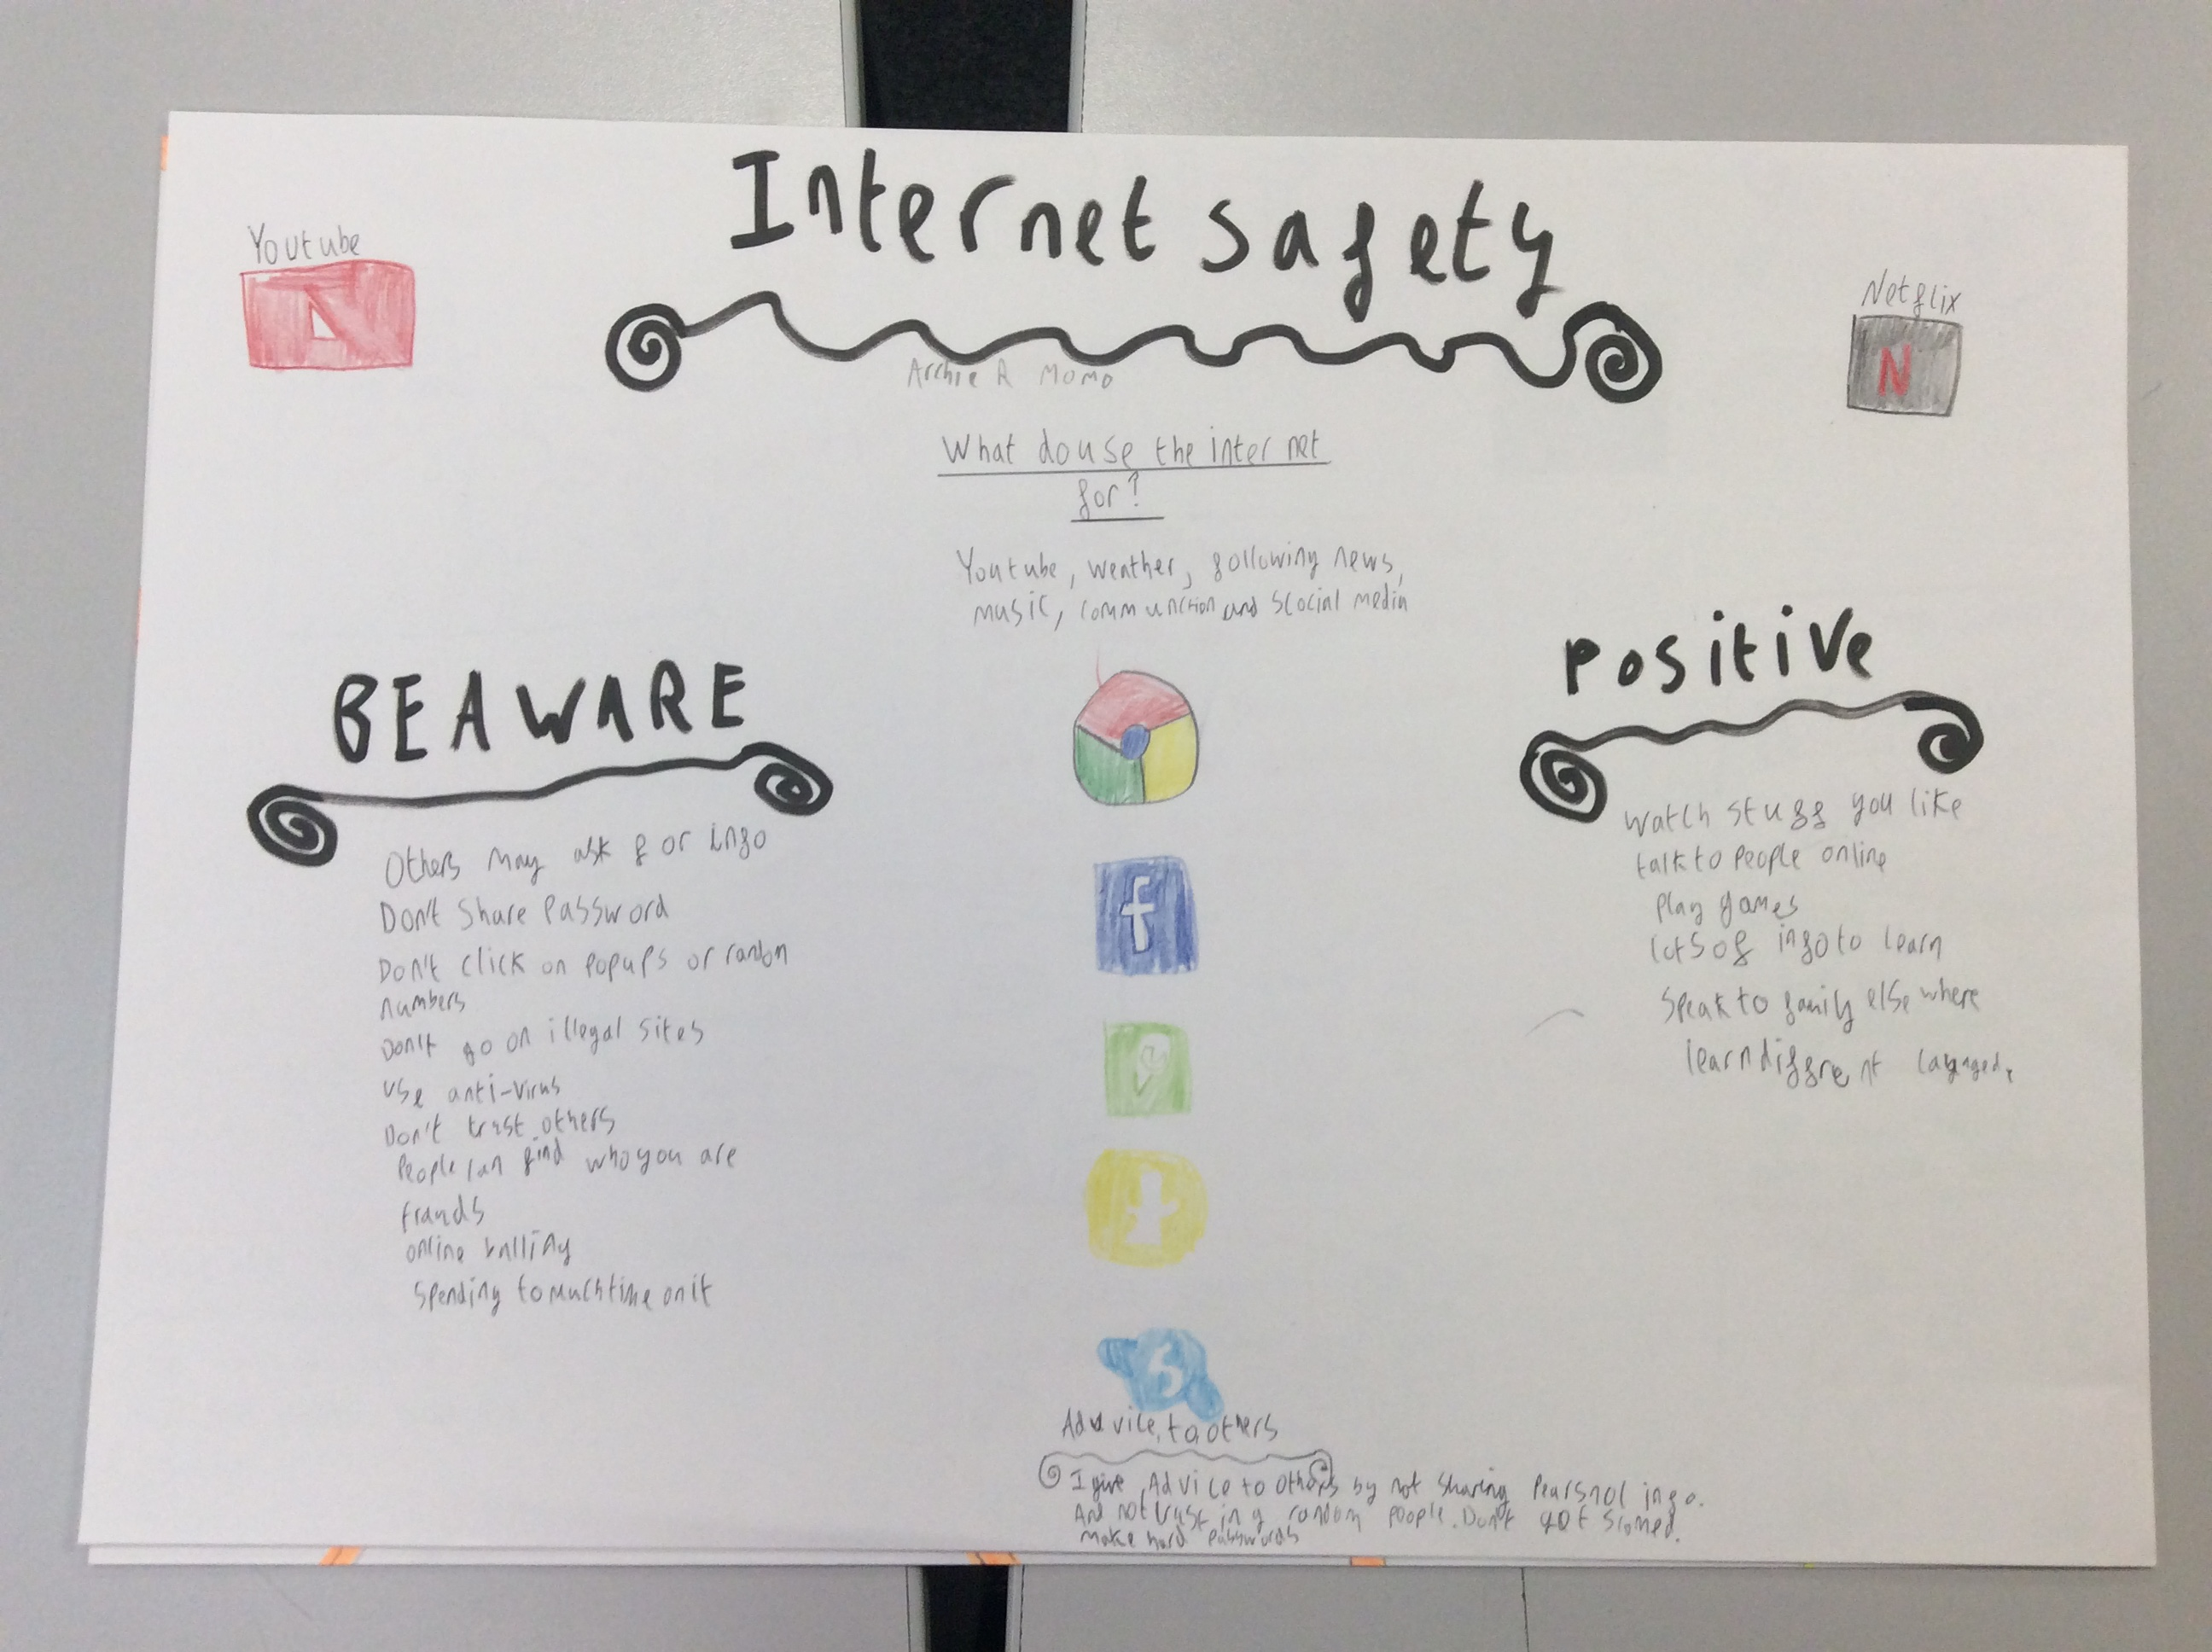 Internet safety
Youtube
Netflix
N
Archie R Momo
What do u se the internet
for?
Youtube, weather, following news,
music, communction and scocial media
BEAWARE
Others may ask for info
Don't share Password
Don't click on popups or random
numbers
Don't go on illegal sites
use anti-virus
Don't trust others
People can find who you are
frauds
online bulling
Spending to much time on it
f
Positive
watch stuff you like
talk to people online
Play games
lots of info to learn
Speak to family else where
learn diffrent
Advice to others
I give Advice to others by not sharing Pearsnol info.
And not trusting random people. Don't get scamed.
make hard passwords